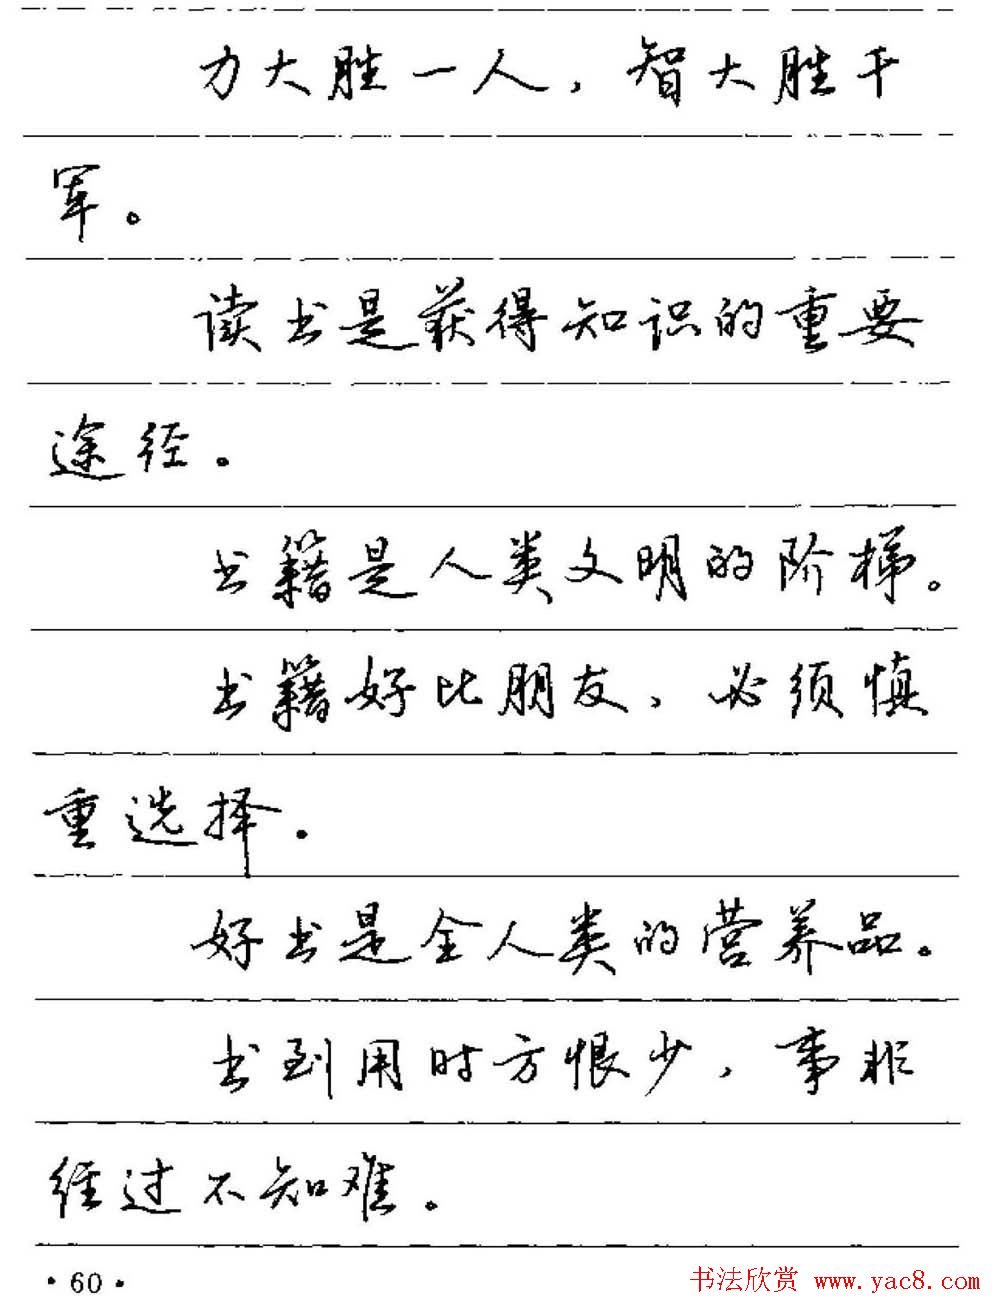 力大胜一人，智大胜千
军。
读书是获得知识的重要
途径。
书籍是人类文明的阶梯。
书籍好比朋友，必须慎
重选择。
好书是全人类的营养品。
书到用时方恨少，事非
经过不知难。
·60·
书法欣赏 www.yac8.com